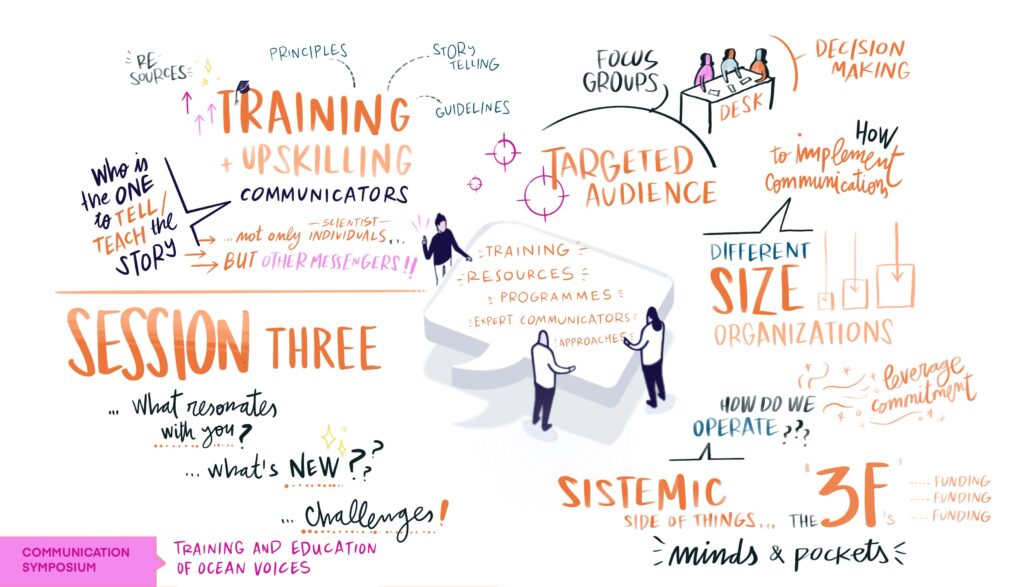 RE
SOURCES
PRINCIPLES
STORY
TELLING
GUIDELINES
TRAINING
+ UPSKILLING
COMMUNICATORS
Who is
the ONE
to TELL/
TEACH the
STORY
- SCIENTIST -
... not only INDIVIDUALS...
BUT OTHER MESSENGERS!!
SESSION THREE
... What resonates
with you?
... what's NEW???
... challenges!
COMMUNICATION
SYMPOSIUM
TRAINING AND EDUCATION
OF OCEAN VOICES
TRAINING
RESOURCES
PROGRAMMES
EXPERT COMMUNICATORS
APPROACHES
FOCUS
GROUPS
DESK
DECISION
MAKING
TARGETED
AUDIENCE
HOW
to implement
communication
DIFFERENT
SIZE
ORGANIZATIONS
leverage
commitment
HOW DO WE
OPERATE???
SISTEMIC
SIDE OF THINGS...
THE '3F's
FUNDING
FUNDING
FUNDING
minds & pockets